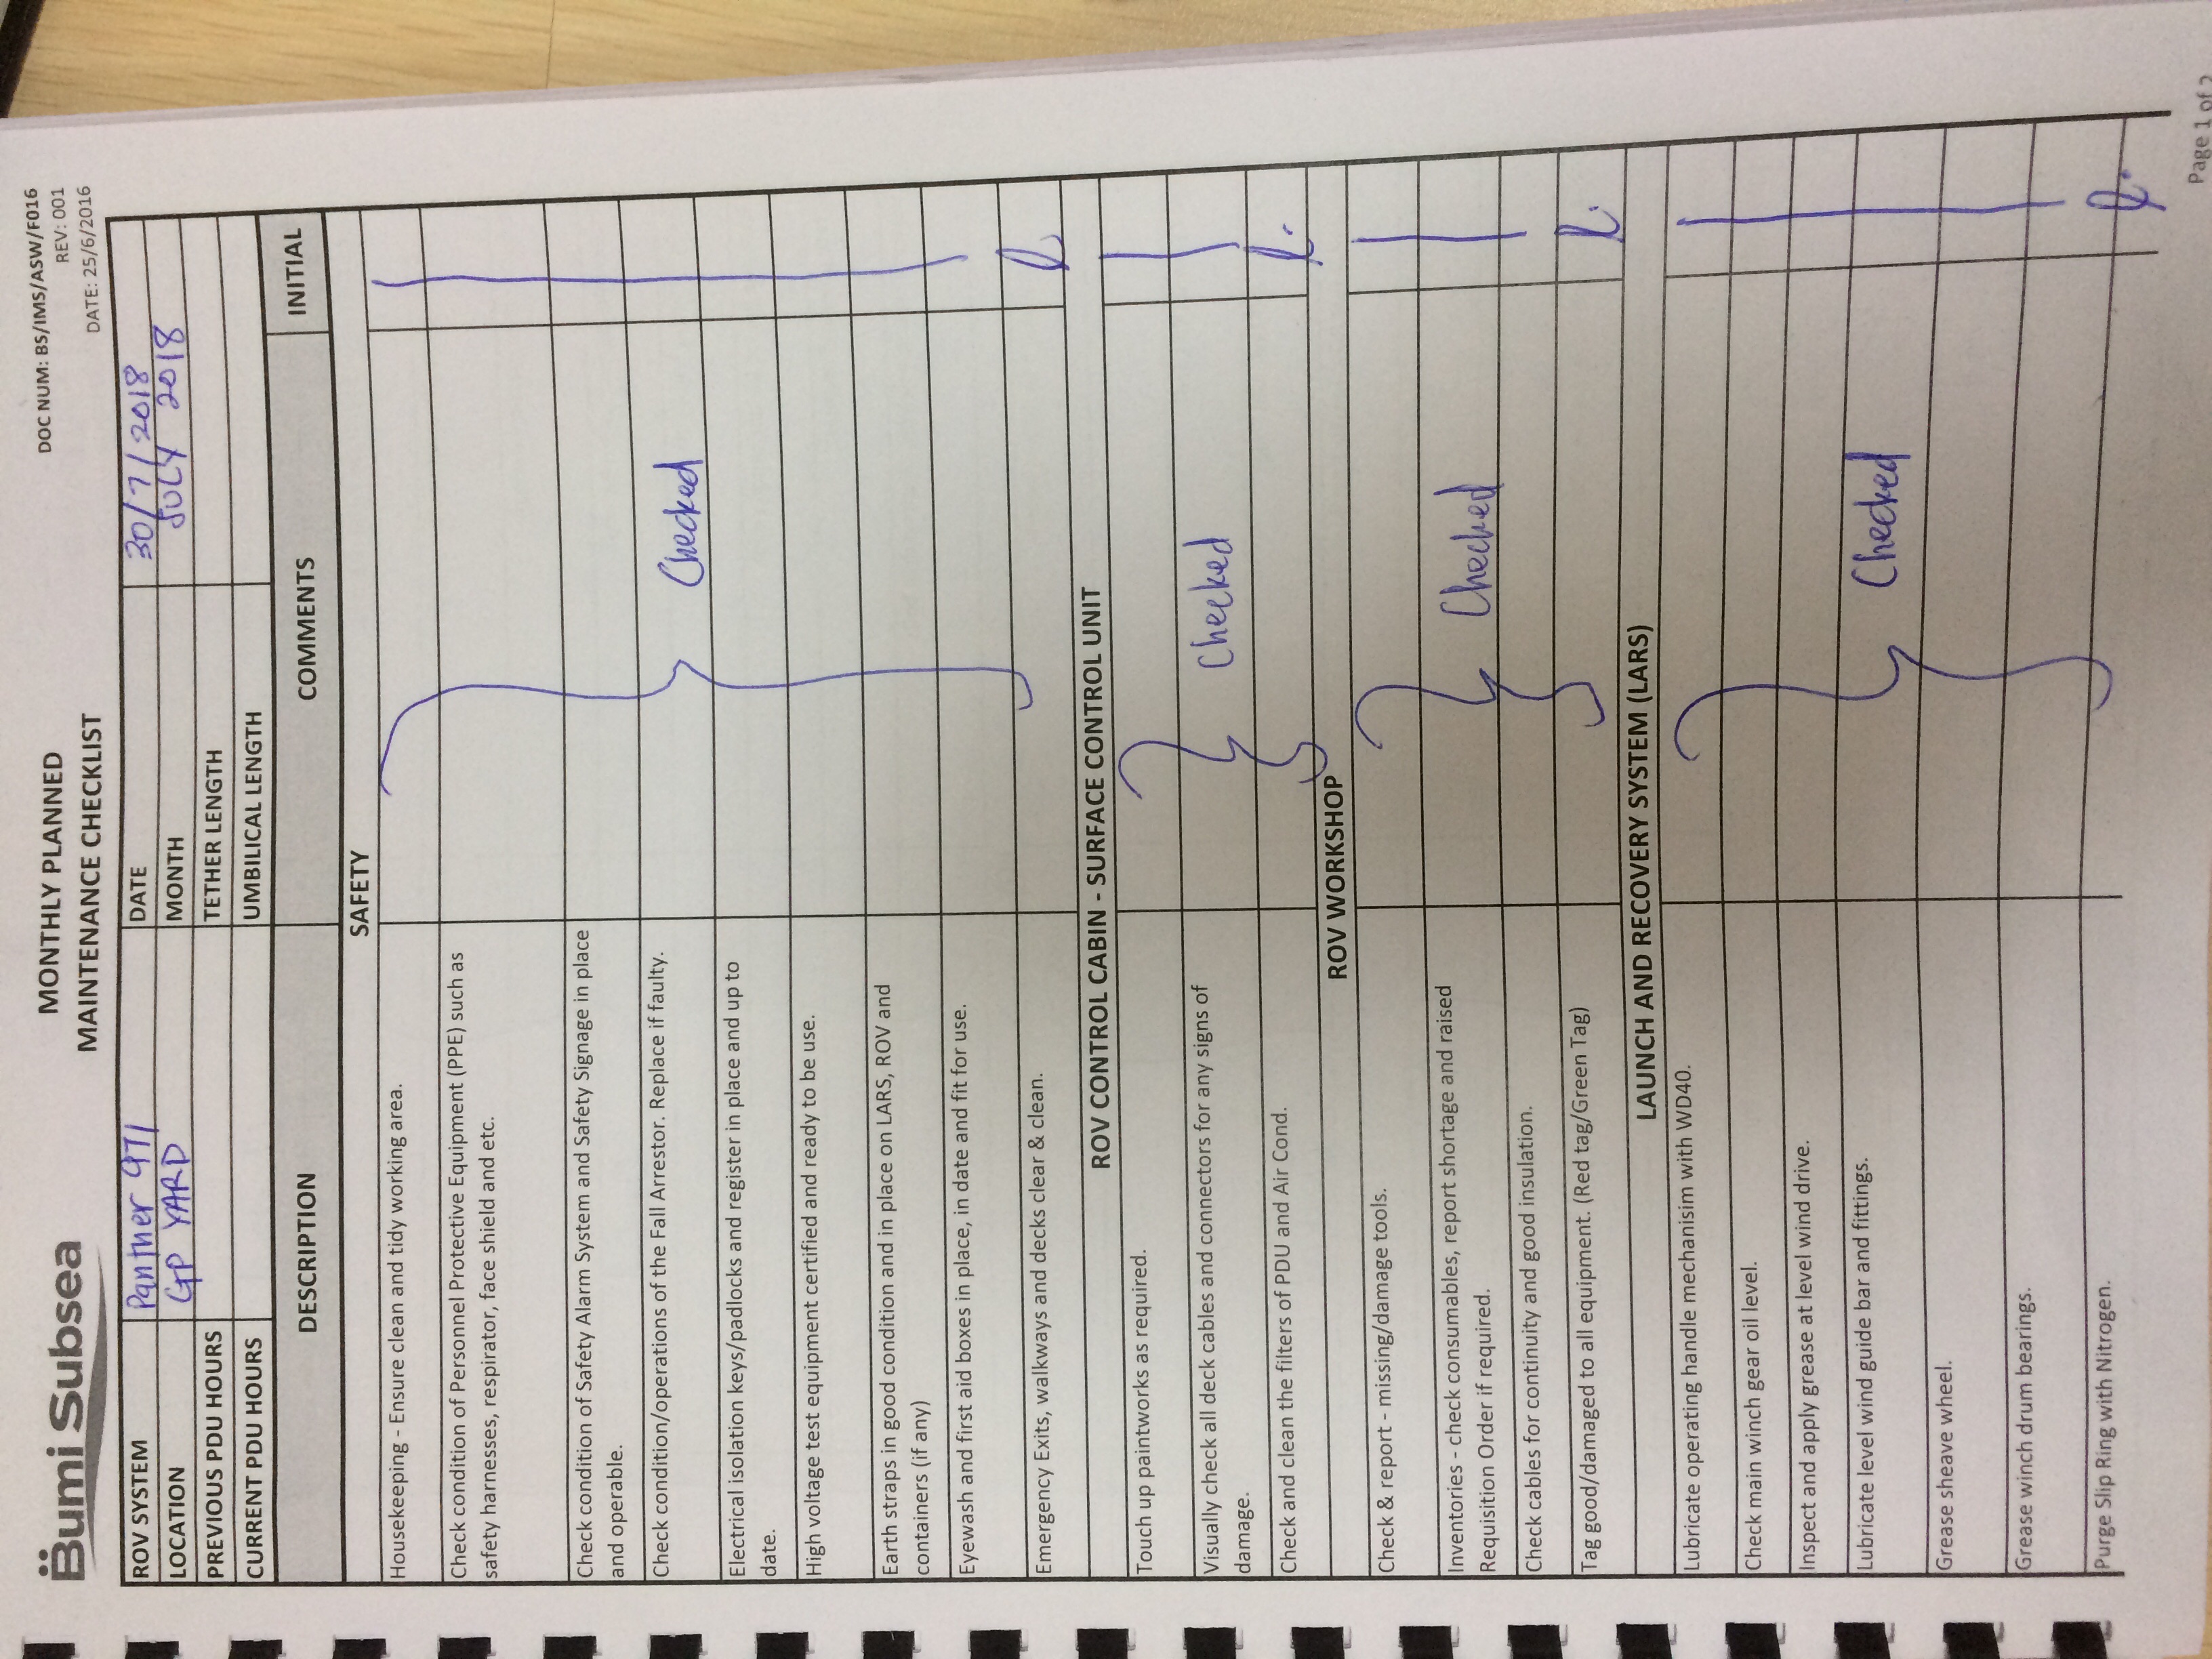 Bumi Subsea
MONTHLY PLANNED
MAINTENANCE CHECKLIST
DOC NUM: BS/IMS/ASW/F016
REV: 001
DATE: 25/6/2016
ROV SYSTEM Panther 971 DATE 30/7/2018
LOCATION GP YARD MONTH JULY 2018
PREVIOUS PDU HOURS TETHER LENGTH
CURRENT PDU HOURS UMBILICAL LENGTH
DESCRIPTION COMMENTS INITIAL
SAFETY
Housekeeping - Ensure clean and tidy working area.
Check condition of Personnel Protective Equipment (PPE) such as
safety harnesses, respirator, face shield and etc.
Check condition of Safety Alarm System and Safety Signage in place
and operable.
Check condition/operations of the Fall Arrestor. Replace if faulty.
Checked
Electrical isolation keys/padlocks and register in place and up to
date.
High voltage test equipment certified and ready to be use.
Earth straps in good condition and in place on LARS, ROV and
containers (if any)
Eyewash and first aid boxes in place, in date and fit for use.
Emergency Exits, walkways and decks clear & clean.
ROV CONTROL CABIN - SURFACE CONTROL UNIT
Touch up paintworks as required.
Visually check all deck cables and connectors for any signs of
damage.
Checked
Check and clean the filters of PDU and Air Cond.
ROV WORKSHOP
Check & report - missing/damage tools.
Inventories - check consumables, report shortage and raised
Requisition Order if required.
Checked
Check cables for continuity and good insulation.
Tag good/damaged to all equipment. (Red tag/Green Tag)
LAUNCH AND RECOVERY SYSTEM (LARS)
Lubricate operating handle mechanisim with WD40.
Check main winch gear oil level.
Inspect and apply grease at level wind drive.
Lubricate level wind guide bar and fittings.
Checked
Grease sheave wheel.
Grease winch drum bearings.
Purge Slip Ring with Nitrogen.
Page 1 of 2